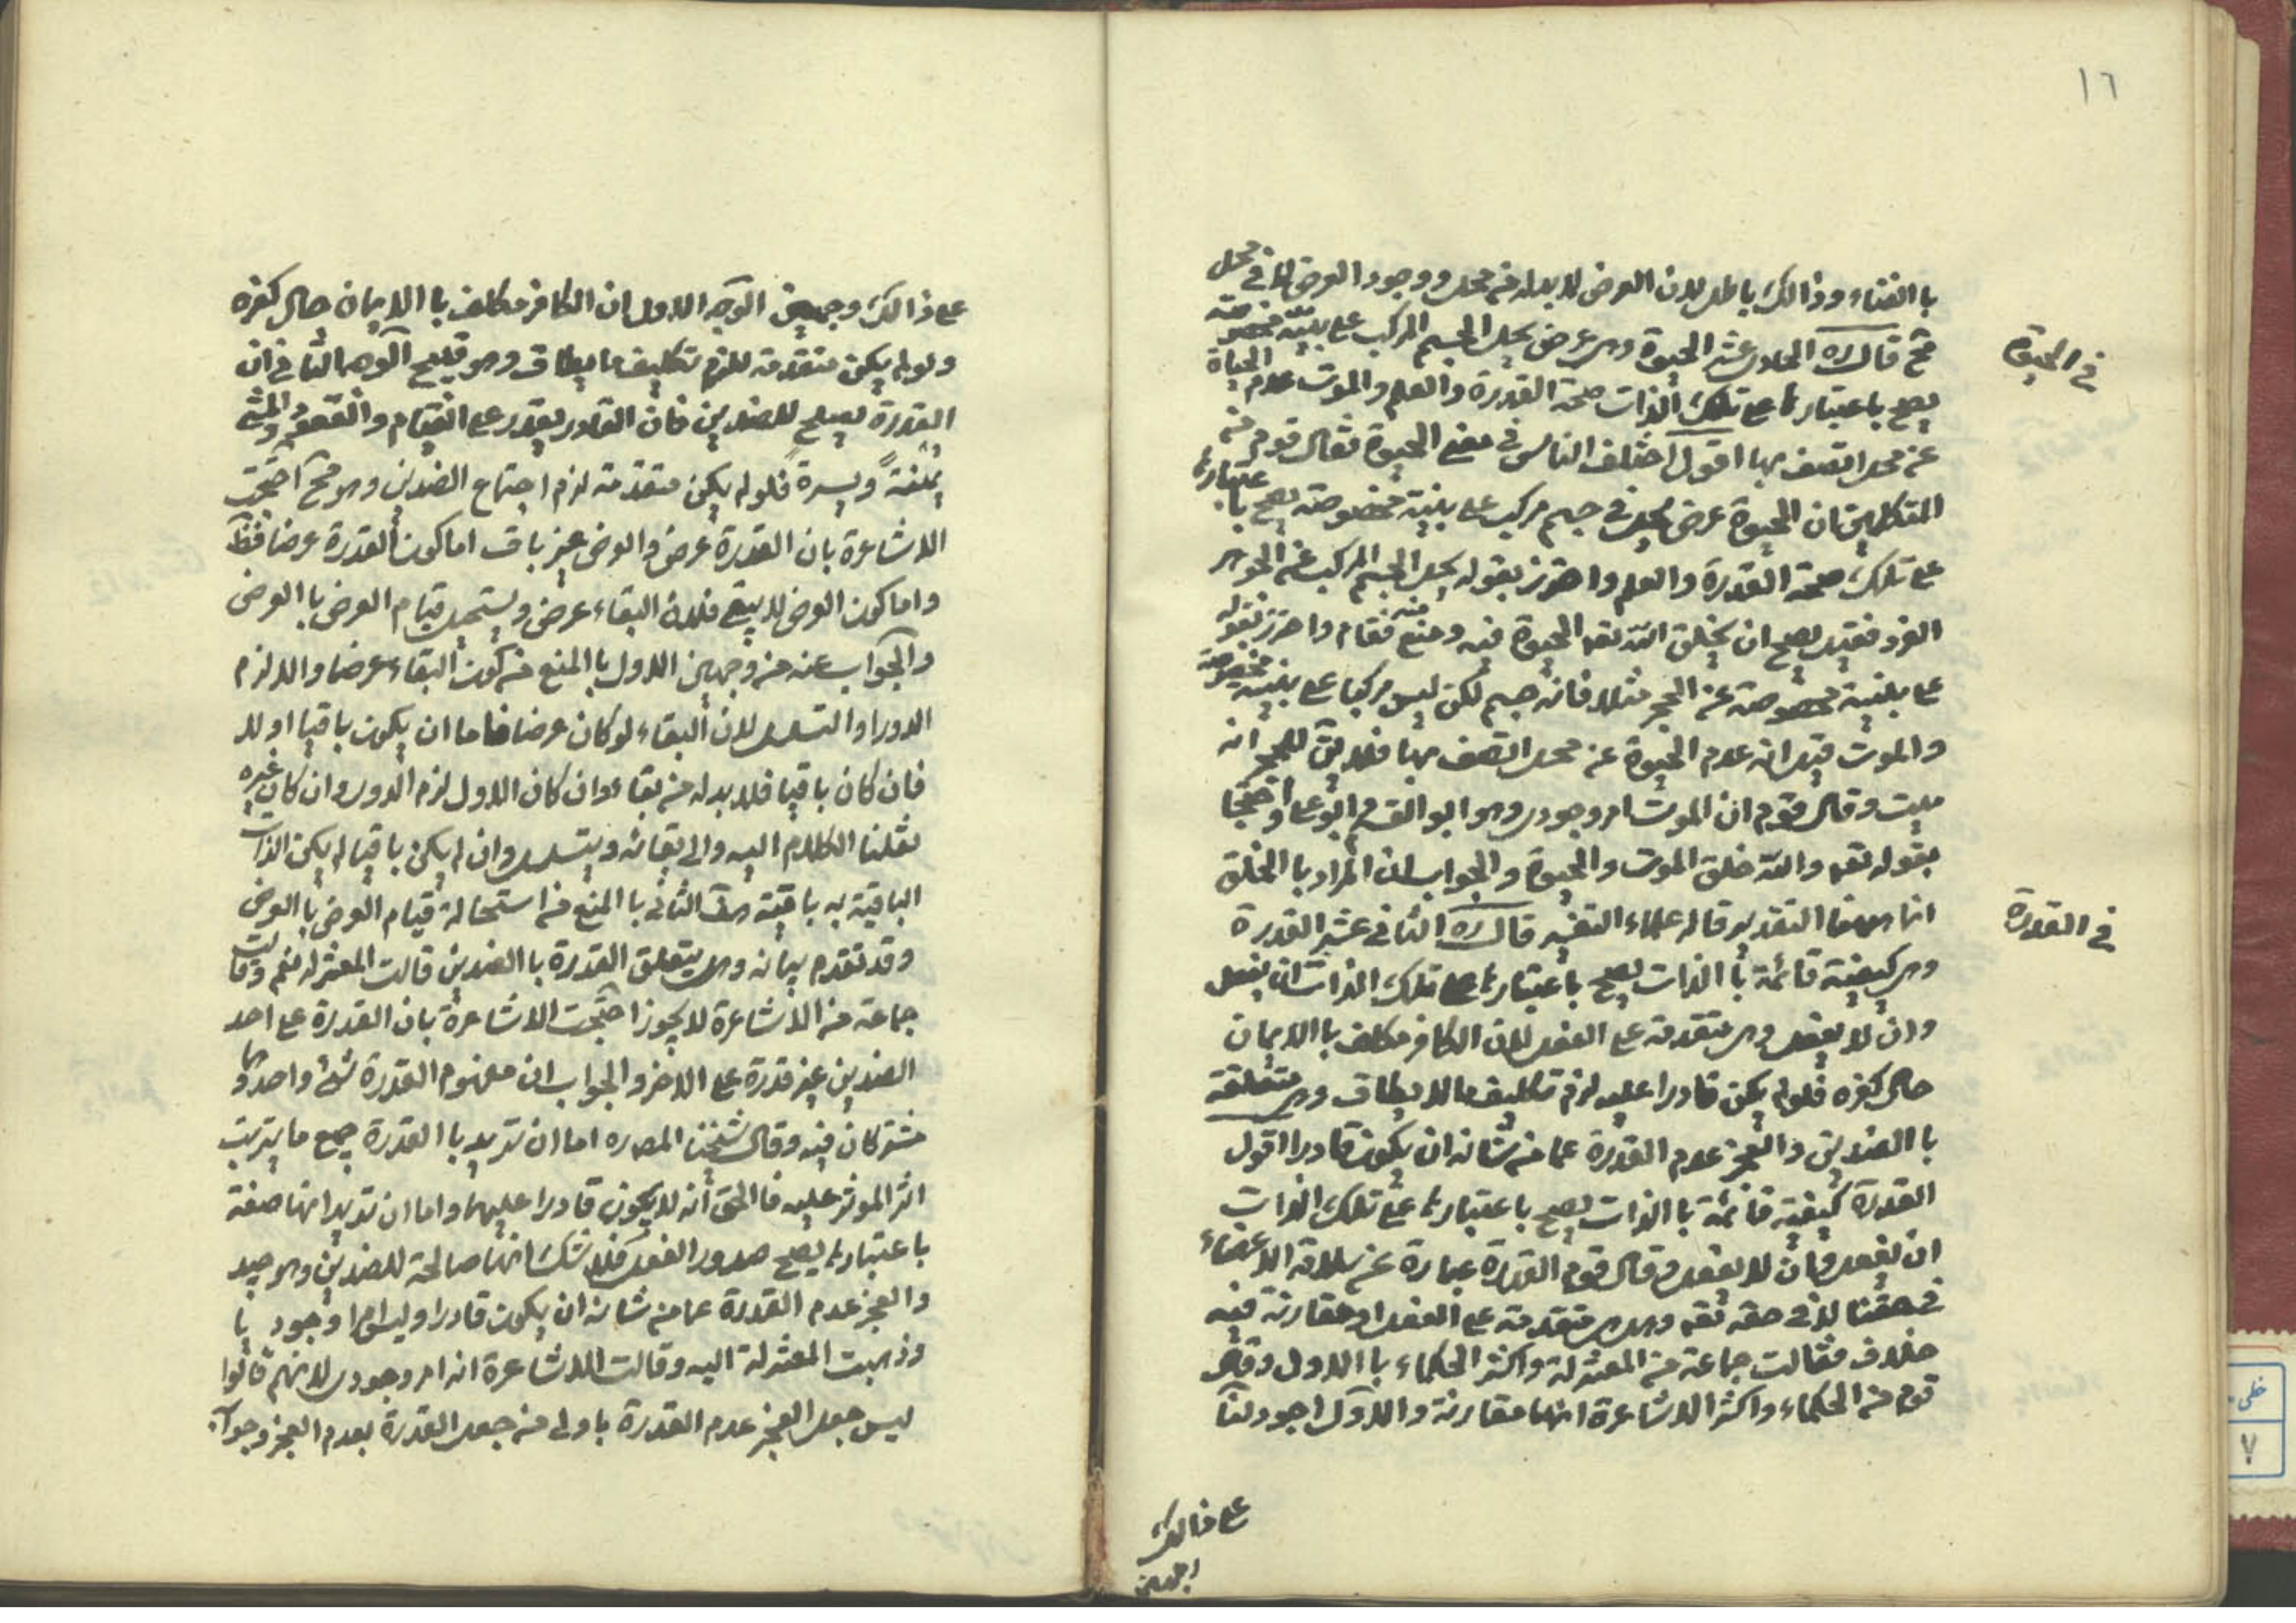 ١٦
باالفناء وذالك باطل لان العرض لابد له من محل ووجود العرض لا في محل
مح قال ره الحادي عشر الحيوة وهي عرض يحل الجسم المركب على بنية مخصوصة
يصح باعتبارها على تلك الذات صحة القدرة والعلم والموت عدم الحياة
عن محل اتصف بها اقول اختلف الناس في معنى الحيوة فقال قوم من
المتكلمين ان الحيوة عرض يحل في جسم مركب على بنية مخصوصة يصح باعتبارها
على تلك صحة القدرة والعلم واحترز بقوله يحل الجسم المركب عن الجوهر
الفرد فقيل يصح ان يخلق الله تعه الحيوة فيه ومنع منه فقام واحترز بقوله
على بنية مخصوصة عن الحجر مثلا فانه جسم لكن ليس مركبا على بنية مخصوصة
والموت قيل انه عدم الحيوة عن محل اتصف بها فلا يق للحجر انه
ميت وقال قوم ان الموت امر وجودي وهو ابو القسم وابو علي واحتجا
بقوله تعه والله خلق الموت والحيوة والجواب ان المراد باالخلق
انما هيهنا التقدير قاله علماء التفسير قال ره الثاني عشر القدرة
وهي كيفية قائمة باالذات يصح باعتبارها على تلك الذات ان يفعل
وان لا يفعل وهي متقدمة على الفعل لان الكافر مكلف باالايمان
حال كفره فلو لم يكن قادرا عليه لزم تكليف ما لا يطاق وهي متعلقة
باالضدين والعجز عدم القدرة عما من شانه ان يكون قادرا اقول
القدرة كيفية قائمة باالذات يصح باعتبارها على تلك الذات
ان يفعل وان لا يفعل وقال قوم القدرة عبارة عن سلامة الاعضاء
في حقنا لا في حقه تعه وهل هي متقدمة على الفعل او مقارنة فيه
خلاف فقالت جماعة من المعتزلة واكثر الحكماء باالاول وقال
قوم من الحكماء واكثر الاشاعرة انها مقارنة والاول اجود لنا
في الحيوة
في القدرة
على ذالك
وجهين
على ذالك وجهين الوجه الاول ان الكافر مكلف باالايمان حال كفره
ولو لم يكن متقدمة للزم تكليف ما يطاق وهو قبيح الوجه الثاني ان
القدرة يصلح للضدين فان القادر يقدر على القيام والقعود والمشي
يمنة ويسرة فلو لم يكن متقدمة لزم اجتماع الضدين وهو مح احتجت
الاشاعرة بان القدرة عرض والعرض غير باق اما كون القدرة عرضا فظ
واما كون العرض لا يبقى فلان البقاء عرض ويستحيل قيام العرض باالعرض
والجواب عنه من وجهين الاول باالمنع من كون البقاء عرضا والا لزم
الدور او التسلسل لان البقاء لو كان عرضا فاما ان يكون باقيا او لا
فان كان باقيا فلا بد له من بقاء وان كان الاول لزم الدور وان كان غيره
نقلنا الكلام اليه والى بقائه ويتسلسل وان لم يكن باقيا لم يكن الذات
الباقية به باقية هف الثاني باالمنع من استحالة قيام العرض باالعرض
وقد تقدم بيانه وهل يتعلق القدرة باالضدين قالت المعتزله نعم وقالت
جماعة من الاشاعرة لا يجوز احتجت الاشاعرة بان القدرة على احد
الضدين غير قدرة على الاخر والجواب ان مفهوم القدرة شئ واحد وهما
مشتركان فيه وقال شيخنا المص ره اما ان تريد باالقدرة جميع ما يترتب
اثر الموثر عليه فاالحق انه لا يكون قادرا عليهما واما ان تريد انها صفة
باعتبارها يصح صدور الفعل فلا شك انها صالحة للضدين وهو جيد
والعجز عدم القدرة عما من شانه ان يكون قادرا وليس امرا وجوديا
وذهبت المعتزلة اليه وقالت الاشاعرة انه امر وجودي لانهم قالوا
ليس جعل العجز عدم القدرة باولى من جعل القدرة بعدم العجز وجوابه
خطى
٧